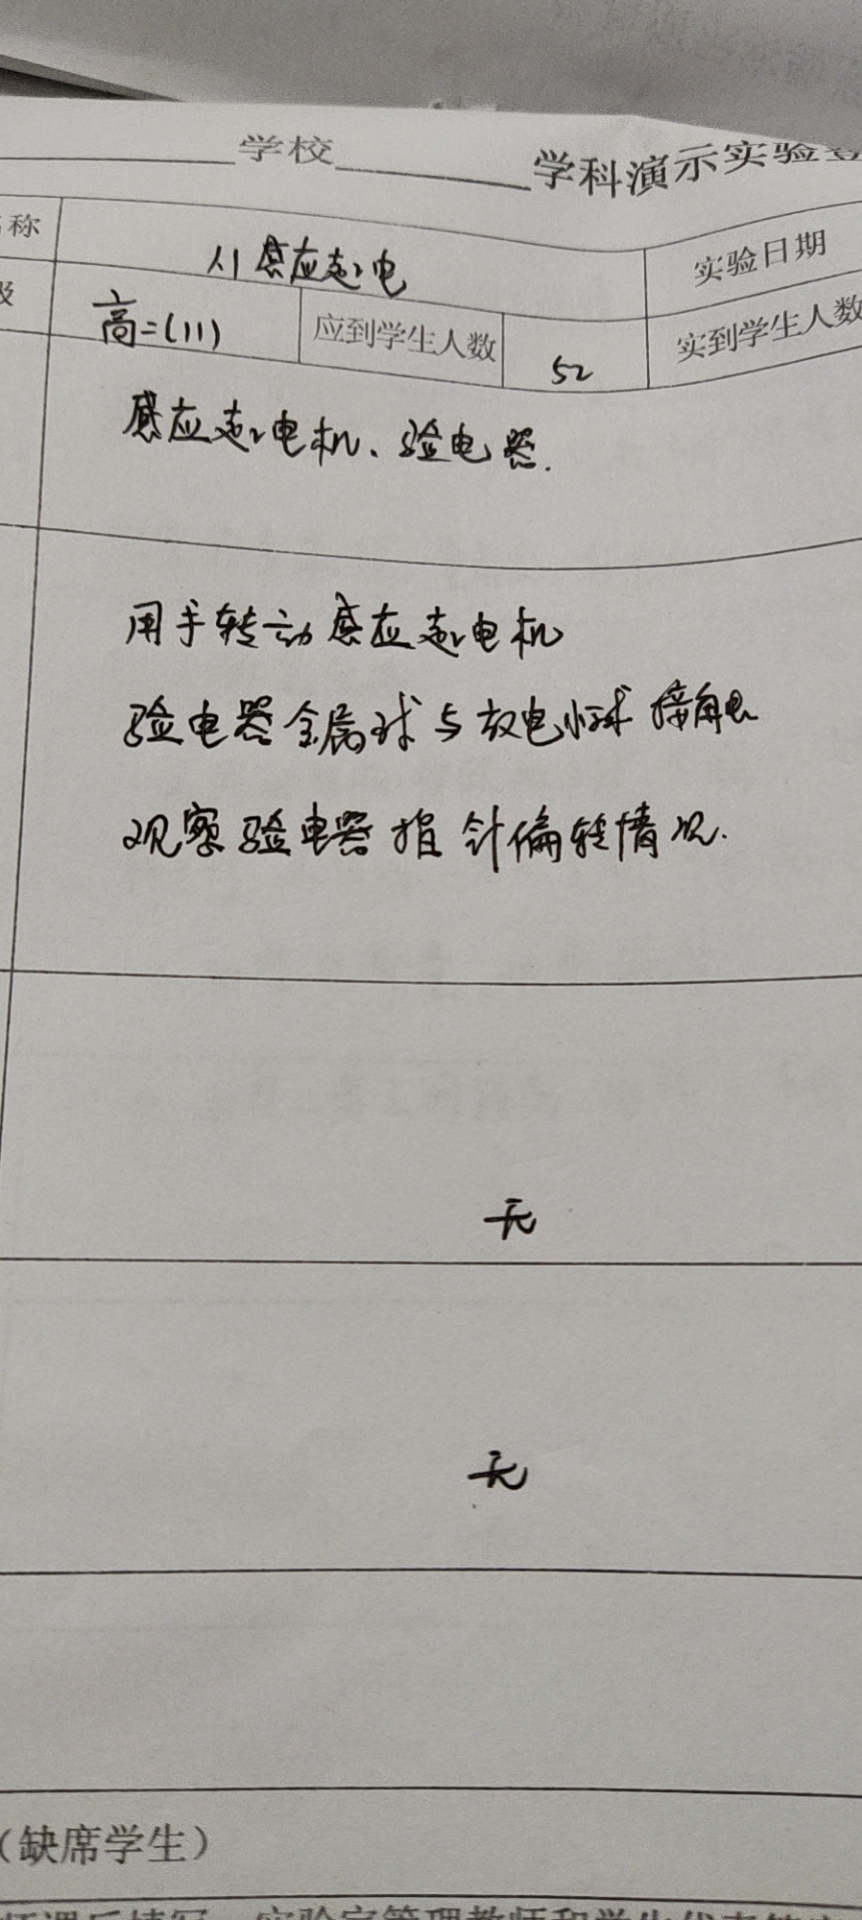 学校 学科演示实验
称 人1感应起电 实验日期
高二(11) 应到学生人数 52 实到学生人数
感应起电机、验电器.
用手转动感应起电机
验电器金属球与放电小球接触
观察验电器指针偏转情况.
无
无
(缺席学生)